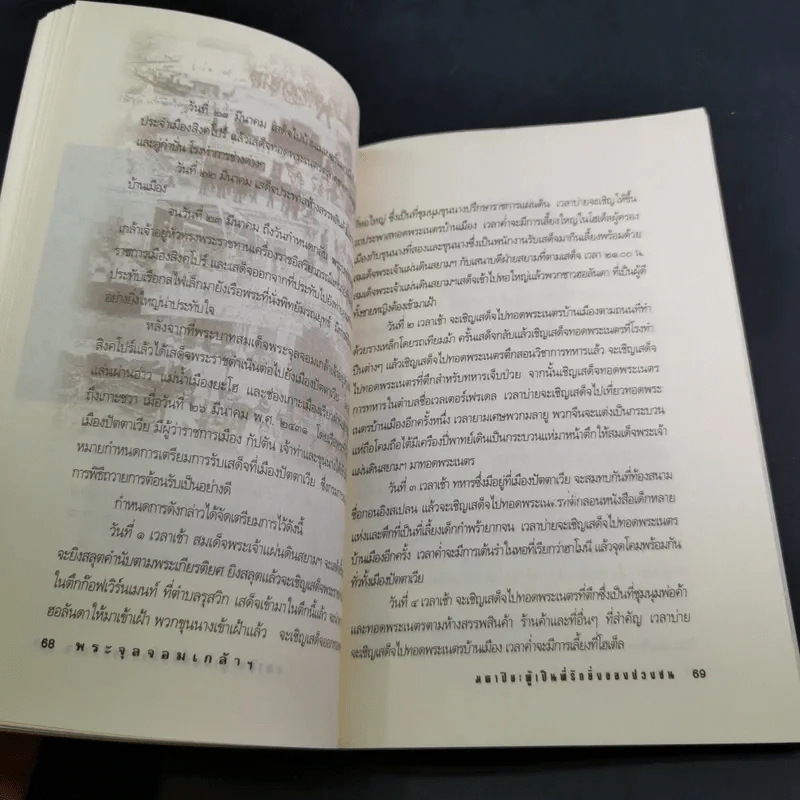 วันที่ ๒๑ มีนาคม เสด็จไปบ้าน
ประจำเมืองสิงคโปร์ แล้วเสด็จทอดพระเนตร
และอู่กำปั่น โรงทำการช่างต่างๆ
วันที่ ๒๒ มีนาคม เสด็จประพาสห้างสรรพสินค้า
บ้านเมือง
จนวันที่ ๒๓ มีนาคม ถึงวันกำหนด
เกล้าเจ้าอยู่หัวทรงพระราชทานเครื่องราชอิสริยาภรณ์
ราชการเมืองสิงคโปร์ และเสด็จออกจากที่ประทับไป
ประทับเรือกลไฟเล็กมายังเรือพระที่นั่งพิทยัมรณยุทธ์
อย่างยิ่งใหญ่น่าประทับใจ
หลังจากที่พระบาทสมเด็จพระจุลจอมเกล้าเจ้าอยู่หัว
สิงคโปร์แล้วได้เสด็จพระราชดำเนินต่อไปยังเมืองปัตตาเวีย
แล่นผ่านอ่าว แม่น้ำเมืองยะโฮ และช่องเกาะเมืองเรียว
ถึงเกาะชวา เมื่อวันที่ ๒๖ มีนาคม พ.ศ. ๒๔๓๑
เมืองปัตตาเวีย มีผู้ว่าราชการเมือง กัปตัน เจ้าท่าและขุนนาง
หมายกำหนดการเตรียมการรับเสด็จที่เมืองปัตตาเวีย
การพิธีถวายการต้อนรับเป็นอย่างดี
กำหนดการดังกล่าวได้จัดเตรียมการไว้ดังนี้
วันที่ ๑ เวลาเช้า สมเด็จพระเจ้าแผ่นดินสยามฯ จะเสด็จ
จะยิงสลุตคำนับตามพระเกียรติยศ ยิงสลุตแล้วจะเชิญเสด็จพระราช
ในตึกก๊อฟเวิร์นเมนท์ ที่ตำบลรุสวิก เสด็จเข้ามาในตึกนี้แล้ว
ฮอลันดาให้มาเข้าเฝ้า พวกขุนนางเข้าเฝ้าแล้ว จะเชิญเสด็จออก
68 พระจุลจอมเกล้าฯ
ที่หอใหญ่ ซึ่งเป็นที่ชุมนุมขุนนางปรึกษาราชการแผ่นดิน เวลาบ่ายจะเชิญให้ขึ้น
รถประพาสทอดพระเนตรบ้านเมือง เวลาค่ำจะมีการเลี้ยงใหญ่ในโฮเต็ลผู้ครอง
เมืองกับขุนนางที่สองและขุนนางซึ่งเป็นพนักงานรับเสด็จมากินเลี้ยงพร้อมด้วย
สมเด็จพระเจ้าแผ่นดินสยามฯ กับเสนาบดีฝ่ายสยามที่ตามเสด็จ เวลา ๒๑.๐๐ น.
สมเด็จพระเจ้าแผ่นดินสยามฯเสด็จเข้าไปหอใหญ่แล้วพวกชาวฮอลันดา ที่เป็นผู้ดี
ทั้งชายหญิงต้องเข้ามาเฝ้า
วันที่ ๒ เวลาเช้า จะเชิญเสด็จไปทอดพระเนตรบ้านเมืองตามถนนที่ทำ
ด้วยรางเหล็กโดยรถเทียมม้า ครั้นเสด็จกลับแล้วเชิญเสด็จทอดพระเนตรที่โรงทำ
ปืนต่างๆ แล้วเชิญเสด็จไปทอดพระเนตรตึกสอนวิชาการทหารแล้ว จะเชิญเสด็จ
ไปทอดพระเนตรที่ตึกสำหรับทหารเจ็บป่วย จากนั้นเชิญเสด็จไปทอดพระเนตร
การทหารในตำบลชื่อเวลเตอร์เฟรเดล เวลาบ่ายจะเชิญเสด็จไปเที่ยวทอดพระ
เนตรบ้านเมืองอีกครั้งหนึ่ง เวลายามเศษพวกมลายู พวกจีนจะแต่งเป็นกระบวน
แห่ถือโคมถือไต้มีเครื่องปี่พาทย์เดินเป็นกระบวนแห่มาหน้าตึกให้สมเด็จพระเจ้า
แผ่นดินสยามฯ มาทอดพระเนตร
วันที่ ๓ เวลาเช้า ทหารซึ่งมีอยู่ที่เมืองปัตตาเวีย จะสมทบกันที่ท้องสนาม
ชื่อกอนอิงสเปลน แล้วจะเชิญเสด็จไปทอดพระเนตรที่ตึกสอนหนังสือเด็กหลาย
แห่งและตึกที่เป็นที่เลี้ยงเด็กกำพร้ายากจน เวลาบ่ายจะเชิญเสด็จไปทอดพระเนตร
บ้านเมืองอีกครั้ง เวลาค่ำจะมีการเต้นรำในหอที่เรียกว่าฮาโมนี แล้วจุดโคมพร้อมกัน
ทั่วทั้งเมืองปัตตาเวีย
วันที่ ๔ เวลาเช้า จะเชิญเสด็จไปทอดพระเนตรที่ตึกซึ่งเป็นที่ชุมนุมพ่อค้า
และทอดพระเนตรตามห้างสรรพสินค้า ร้านค้าและที่อื่นๆ ที่สำคัญ เวลาบ่าย
จะเชิญเสด็จไปทอดพระเนตรบ้านเมือง เวลาค่ำจะมีการเลี้ยงที่โฮเต็ล
มหาปิยะผู้เป็นที่รักยิ่งของปวงชน 69